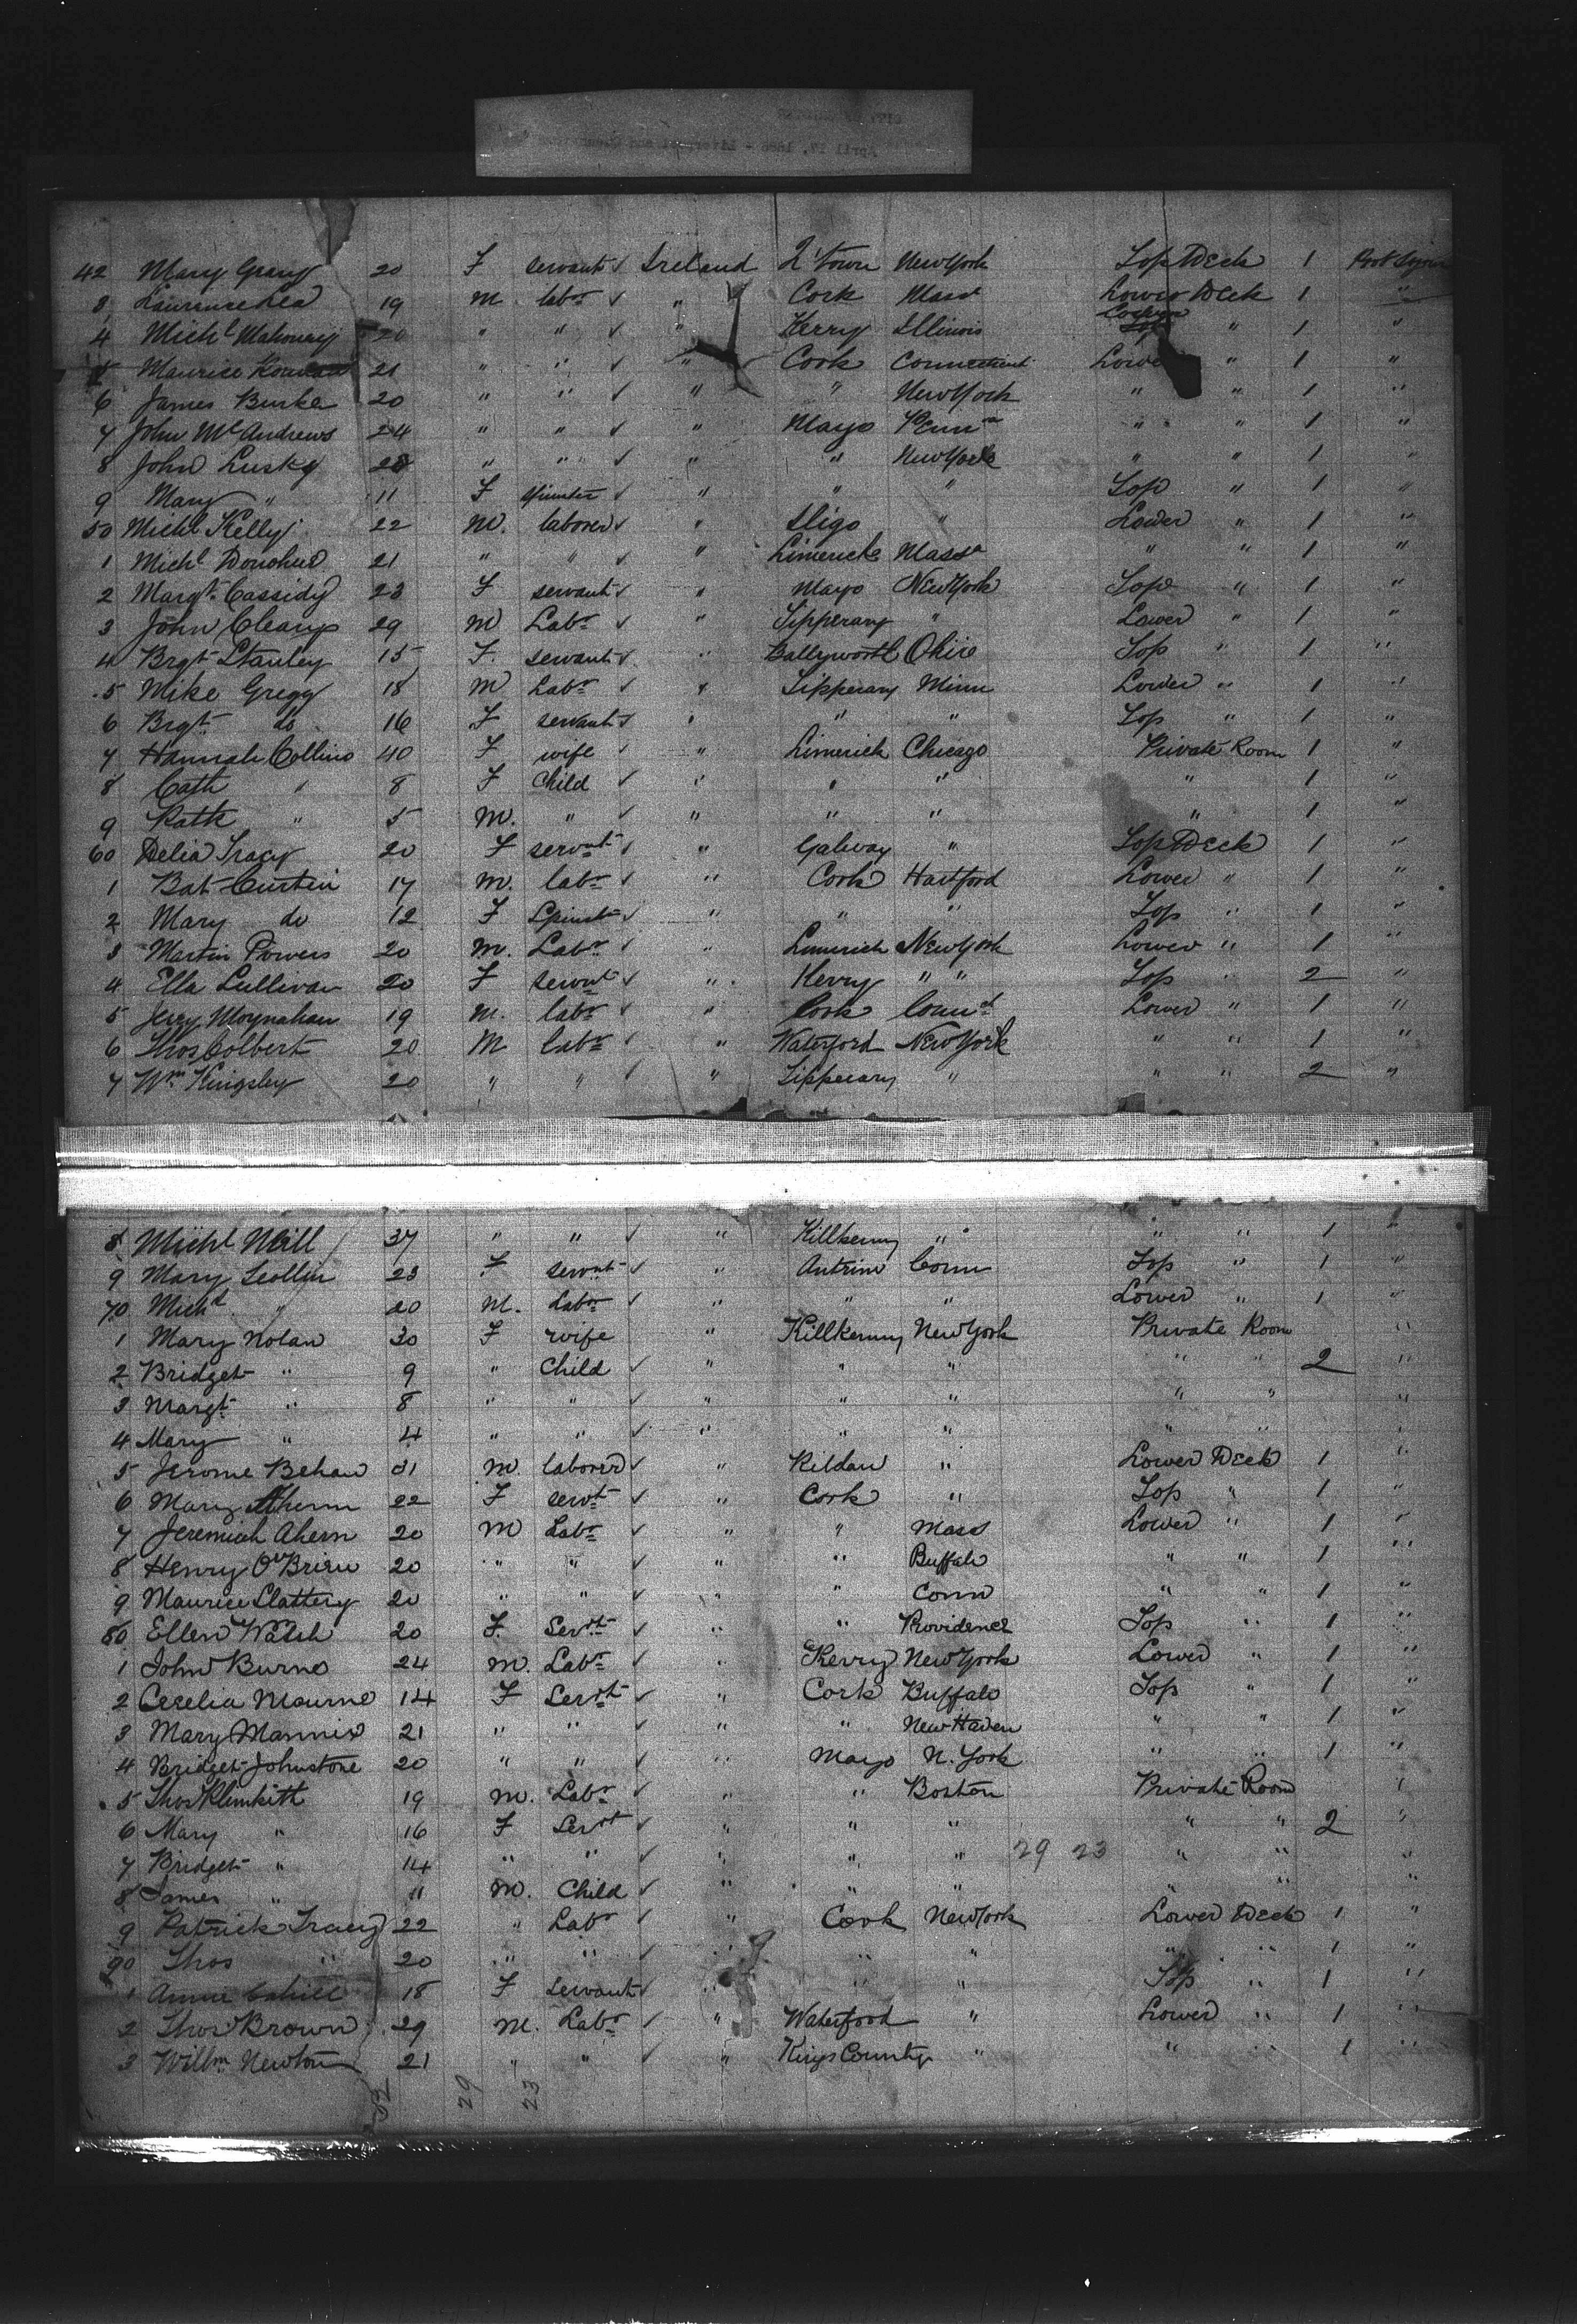 42 Mary Grany 20 F servant ✓ Ireland Q'town New York Top Deck 1
8 Laurence Lea 19 m labr ✓ " Cork Mass Lower Deck 1 "
4 Michl Mahoney 20 " " ✓ " Kerry Illinois " 1 "
5 Maurice 21 " " ✓ " Cork Connecticut Lower " 1 "
6 James Burke 20 " " ✓ " " New York " " 1 "
7 John McAndrews 24 " " ✓ " Mayo Penna " " 1 "
8 John Lusky 28 " " ✓ " " New York " " 1 "
9 Mary " 11 F spinster ✓ " " " Top " 1 "
50 Michl Kelly 22 m. laborer ✓ " Sligo " Lower " 1 "
1 Michl Donohue 21 " " ✓ " Limerick Mass " " 1 "
2 Margt Cassidy 23 F servant ✓ " Mayo New York Top " 1 "
3 John Cleary 29 M Labr ✓ " Tipperary " Lower " 1 "
4 Brgt Stanley 15 F. servant ✓ " Ohio Top " 1 "
5 Mike Gregg 18 M Labr ✓ " Tipperary Minn Lower " 1 "
6 Brgt do 16 F servant ✓ " " " Top " 1 "
7 Hannah Collins 40 F wife ✓ " Limerick Chicago Private Room 1 "
8 Cath " 8 F Child ✓ " " " " 1 "
9 " 5 M. " ✓ " " " " 1 "
60 Delia Tracy 20 F servant ✓ " Galway " Top Deck 1 "
1 Bat Curtin 17 m. labr ✓ " Cork Hartford Lower " 1 "
2 Mary do 12 F Spinst ✓ " " " Top " 1 "
3 Martin Powers 20 M. Labr ✓ " Limerick New York Lower " 1 "
4 Ella Sullivan 20 F servnt ✓ " Kerry " " Top " 2 "
5 Jerry Moynahan 19 m. labr ✓ " Cork Connct Lower " 1 "
6 Thos Colbert 20 M labr ✓ " Waterford New York " " 1 "
7 Wm Kingsley 20 " " ✓ " Tipperary " " " 2 "
8 Michl Neill 37 " " ✓ " Killkenny " " " 1 "
9 Mary 23 F servnt ✓ " Antrim Conn Top " 1 "
70 Michl " 20 M. Labr ✓ " " " Lower " 1 "
1 Mary Nolan 30 F wife " Killkenny New York Private Room "
2 Bridget " 9 " Child ✓ " " " " " 2 "
3 Margt " 8 " " ✓ " " " " " "
4 Mary " 4 " " ✓ " " " " " "
5 Jerome Behan 31 M. laborer ✓ " Kildare " Lower Deck 1 "
6 Mary Ahern 22 F servt ✓ " Cork " Top " 1 "
7 Jeremiah Ahern 20 M Labr ✓ " " Mass Lower " 1 "
8 Henry O'Brien 20 " " ✓ " " Buffalo " " 1 "
9 Maurice Slattery 20 " " ✓ " " Conn " " 1 "
80 Ellen Walsh 20 F. Servt ✓ " " Providence Top " 1 "
1 John Burns 24 M. Labr ✓ " Kerry New York Lower " 1 "
2 Cecelia Mourne 14 F Servt ✓ " Cork Buffalo Top " 1 "
3 Mary Mannix 21 " " ✓ " " New Haven " " 1 "
4 Bridget Johnstone 20 " " ✓ " Mayo N. York " " 1 "
5 Thos Klimkitt 19 M. Labr ✓ " " Boston Private Room "
6 Mary " 16 F Servt ✓ " " " " " 2 "
7 Bridget " 14 " " ✓ " " " 29 23 " " "
8 James " 11 M. Child ✓ " " " " " "
9 Patrick Tracey 22 " Labr ✓ " Cork New York Lower Deck 1 "
90 Thos " 20 " " ✓ " " " " " 1 "
1 Annie Cahill 18 F servant ✓ " " " Top " 1 "
2 Thos Brown 29 M. Labr ✓ " Waterford " Lower " 1 "
3 Willm Newton 21 " " ✓ " Kings County " " " 1 "
29 23